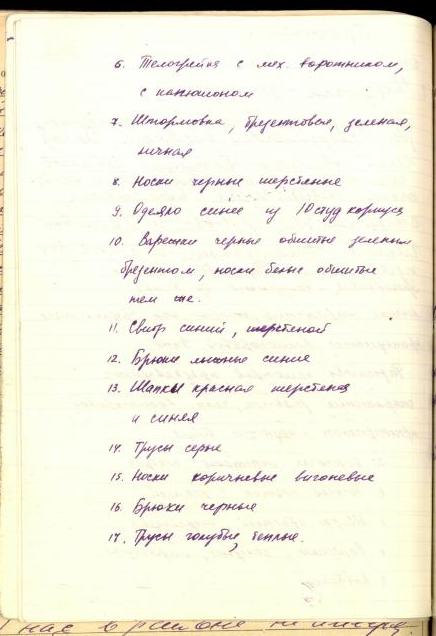 6. Телогрейка с мех. воротником,
с капюшоном
7. Штормовка, брезентовая, зеленая,
личная
8. Носки черные шерстяные
9. Одеяло синее из 10 студ корпуса
10. Варежки черные обшитые зеленым
брезентом, носки белые обшитые
тем же.
11. Свитр синий, шерстяной
12. Брюки лыжные синие
13. Шапки красная шерстяная
и синяя
14. Трусы серые
15. Носки коричневые вигоневые
16. Брюки черные
17. Трусы голубые, теплые.
нас в районе не